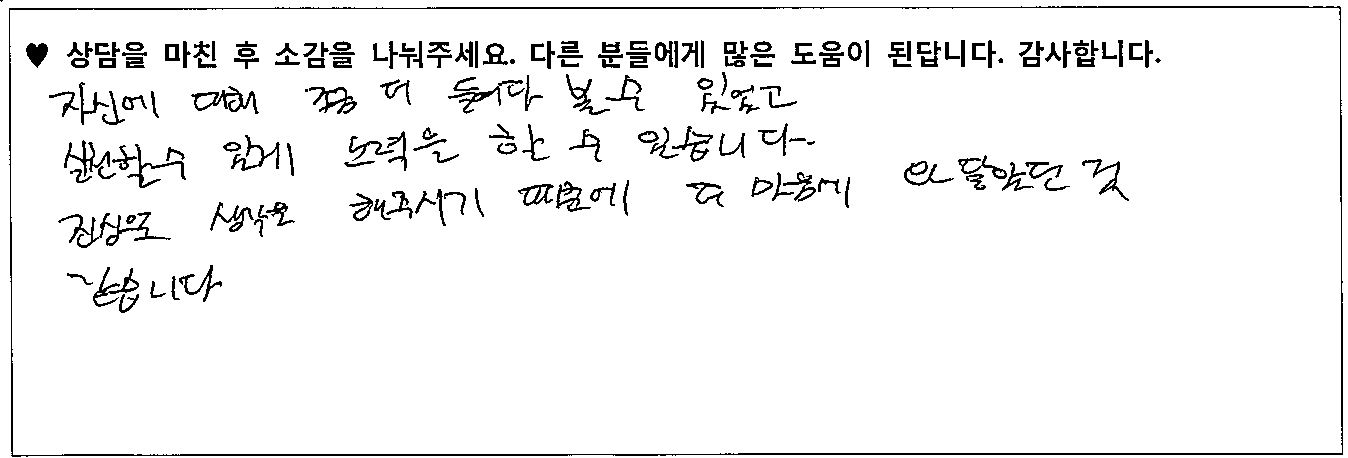 ♥ 상담을 마친 후 소감을 나눠주세요. 다른 분들에게 많은 도움이 된답니다. 감사합니다.
자신에 대해 조금 더 들여다 볼수 있었고
실천할수 있게 노력을 할 수 있습니다.
진심으로 생각을 해주시기 때문에 더 마음에 와 닿았던 것
같습니다